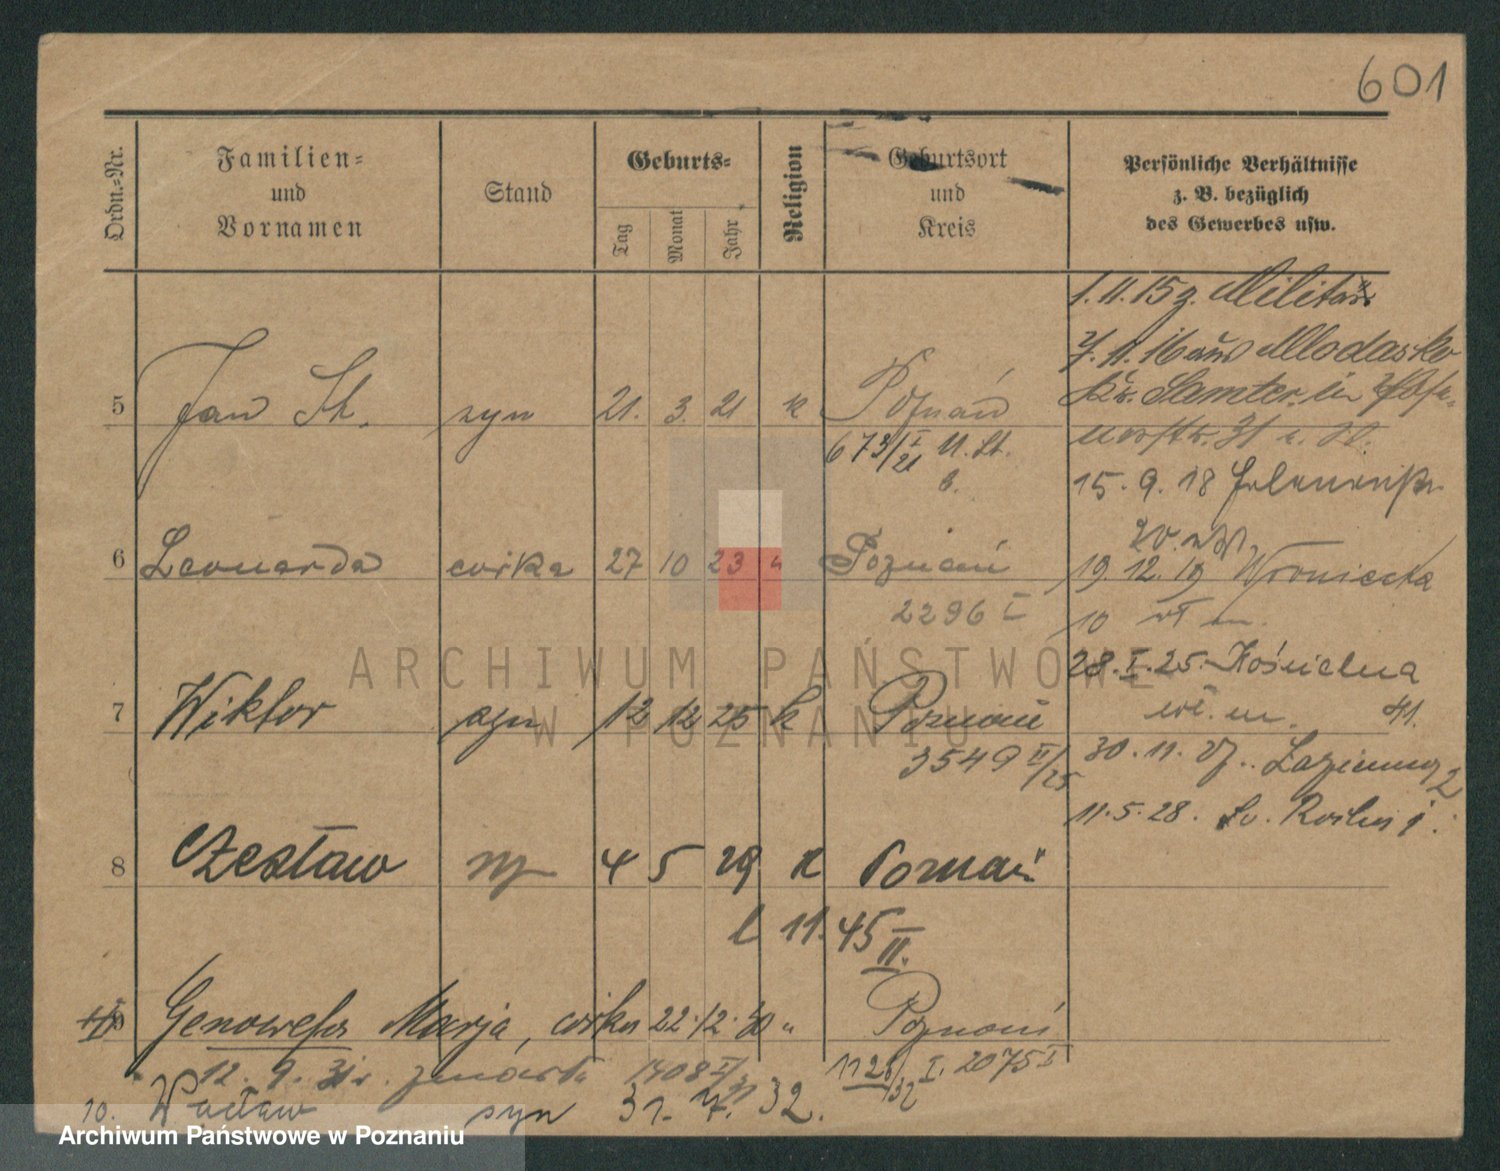 601
Ordn.-Nr.
Familien-
und
Vornamen
Stand
Geburts-
Tag
Monat
Jahr
Religion
Geburtsort
und
Kreis
Persönliche Verhältnisse
z. B. bezüglich
des Gewerbes usw.
1.11.15 z. Militär
7.11.16 aus
Kr. Samter in
5 Jan St. syn 21. 3. 21 k Poznań
673/I 21 U. St.
15.9.18
6 Leonarda córka 27 10 23 " Poznań
2296 I
19.12.19 Wroniecka
10
28.I.25. Kościelna
41.
7 Wiktor syn 12 12 25 k Poznań
3549 II/25
30.11.27. Łazienna 2
11.5.28. Św. Rocha
8 Czesław syn 4 5 29 k Poznań
1145 II.
9 Genowefa Marja, córka 22.12.30 " Poznań
12. 9. 31 r. zmarła 1408 1126/32 I. 2075 I
10. Wacław syn 31. 7. 32.
ARCHIWUM PAŃSTWOWE
W POZNANIU
Archiwum Państwowe w Poznaniu